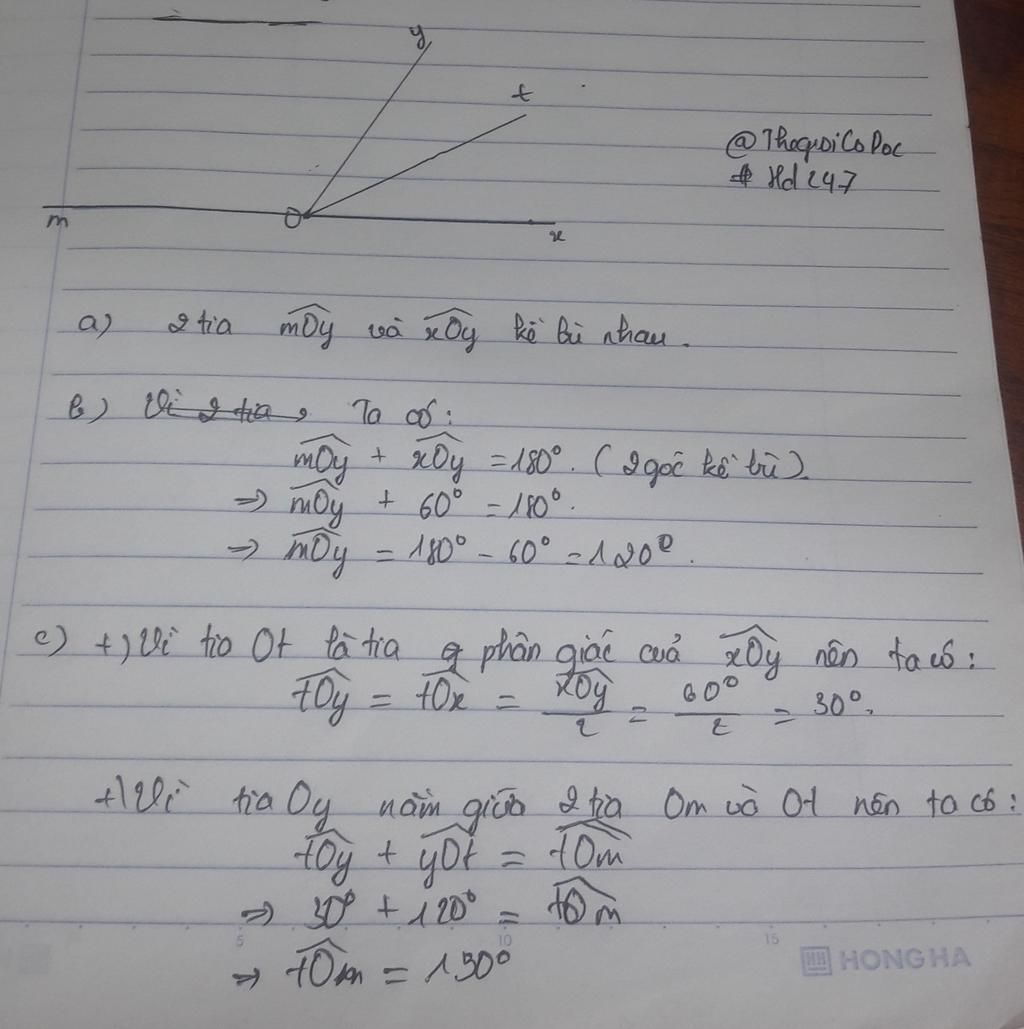 y
t
@ThegioiCoDoc
# Hd247
m
O
x
a) 2 tia mOy và xOy kề bù nhau.
b) Vì 2 tia, Ta có:
mOy + xOy = 180°. (2 góc kề bù).
=> mOy + 60° = 180°.
=> mOy = 180° - 60° = 120°.
c) +) Vì tia Ot là tia phân giác cuả xOy nên ta có:
tOy = tOx = xOy/2 = 60°/2 = 30°.
+) Vì tia Oy nằm giữa 2 tia Om và Ot nên ta có:
tOy + yOt = tOm
=> 30° + 120° = tOm
=> tOm = 150°
5 10 15
HH HONG HA